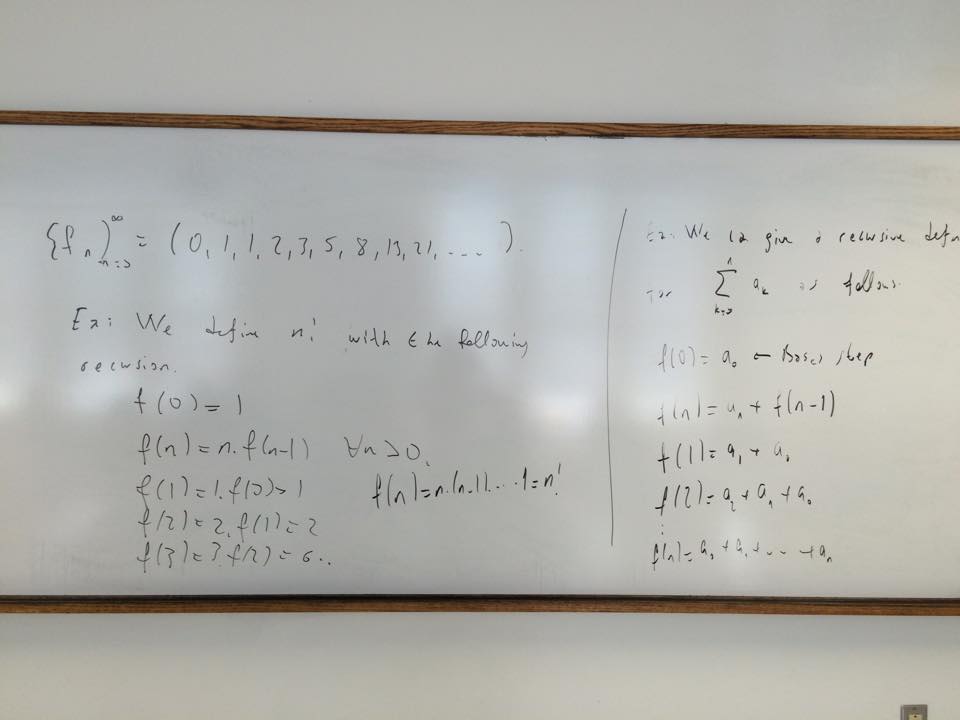 {f_n}_{n=0}^∞ = (0, 1, 1, 2, 3, 5, 8, 13, 21, ... ).
Ex: We define n! with the following
recursion.
f(0) = 1
f(n) = n.f(n-1) ∀n>0.
f(1) = 1.f(0) = 1 f(n) = n.(n-1). ... .1 = n!
f(2) = 2.f(1) = 2
f(3) = 3.f(2) = 6..
Ex: We can give a recursive defn
for ∑_{k=0}^n a_k as follows.
f(0) = a_0 ← Basis step
f(n) = a_n + f(n-1)
f(1) = a_1 + a_0
f(2) = a_2 + a_1 + a_0
⋮
f(n) = a_0 + a_1 + ... + a_n